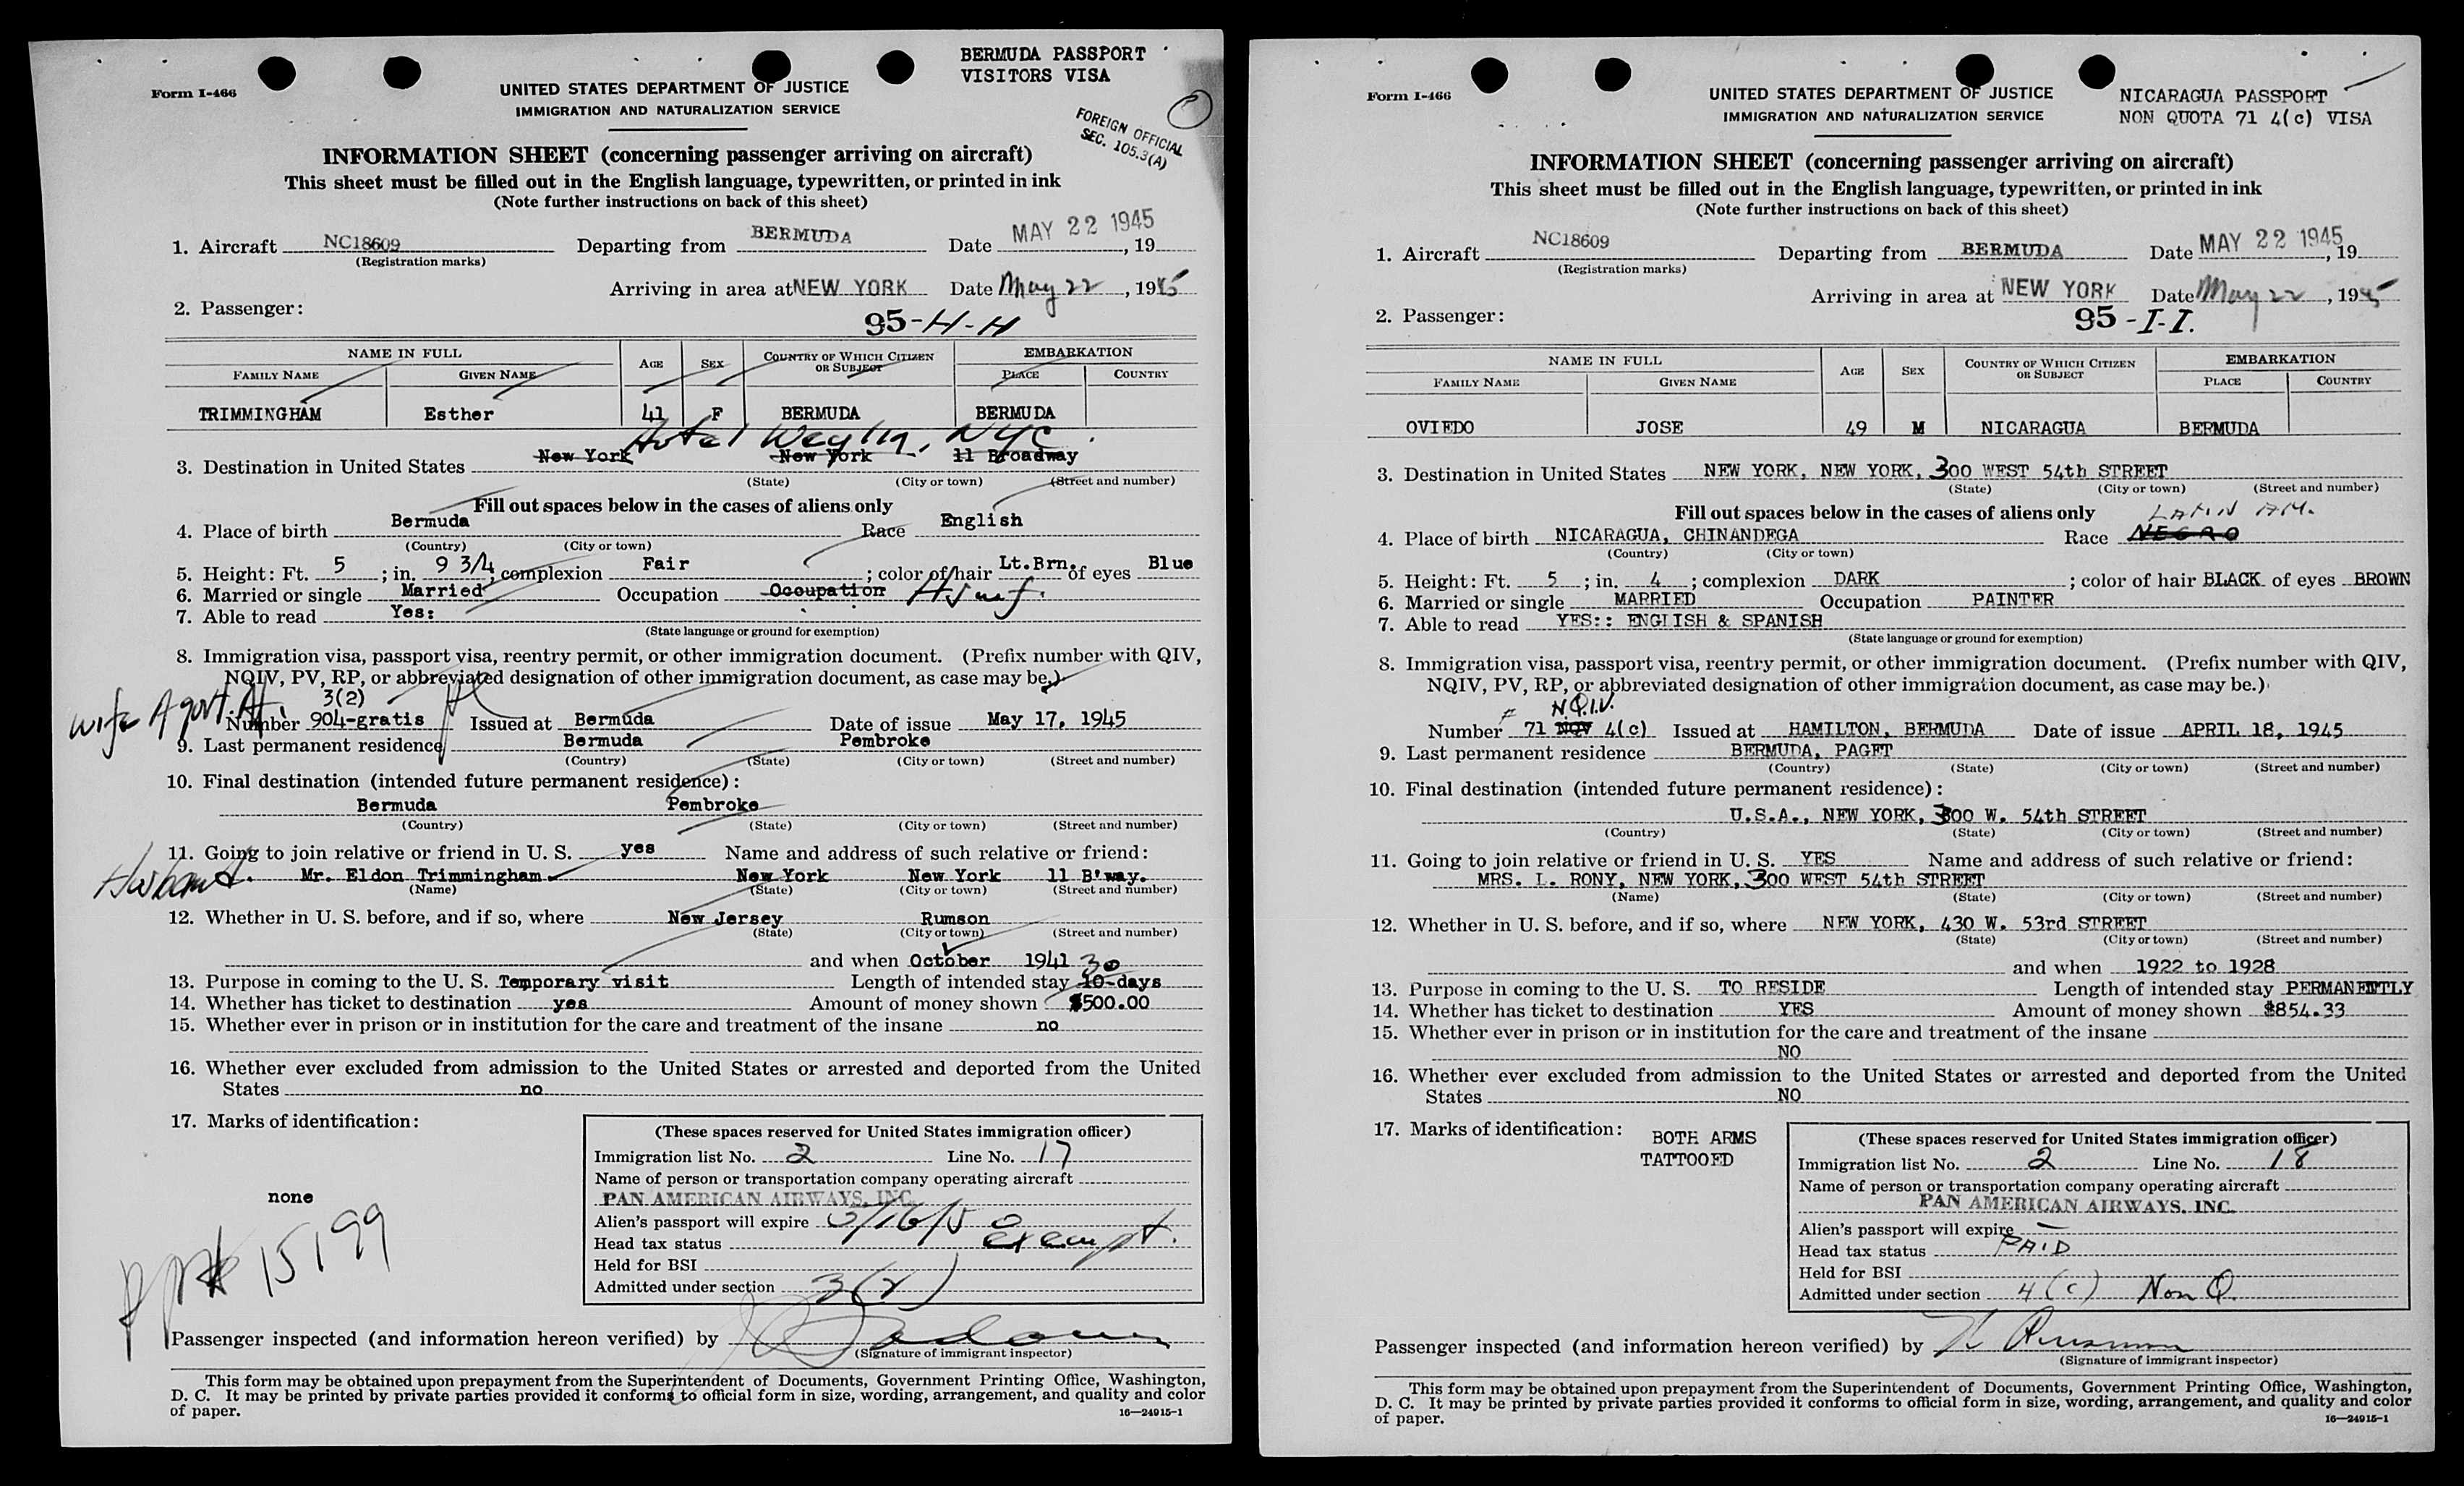 BERMUDA PASSPORT
VISITORS VISA
Form I-466
UNITED STATES DEPARTMENT OF JUSTICE
IMMIGRATION AND NATURALIZATION SERVICE
FOREIGN OFFICIAL
SEC. 105.3(A)
INFORMATION SHEET (concerning passenger arriving on aircraft)
This sheet must be filled out in the English language, typewritten, or printed in ink
(Note further instructions on back of this sheet)
1. Aircraft NC18609 Departing from BERMUDA Date MAY 22 1945, 19
(Registration marks)
Arriving in area at NEW YORK Date May 22, 1945
2. Passenger:
95-H-H
NAME IN FULL AGE SEX COUNTRY OF WHICH CITIZEN OR SUBJECT EMBARKATION
FAMILY NAME GIVEN NAME PLACE COUNTRY
TRIMMINGHAM Esther 41 F BERMUDA BERMUDA
Hotel Weylin, NYC.
3. Destination in United States New York New York 11 Broadway
(State) (City or town) (Street and number)
Fill out spaces below in the cases of aliens only
4. Place of birth Bermuda Race English
(Country) (City or town)
5. Height: Ft. 5; in. 9 3/4; complexion Fair; color of hair Lt.Brn. of eyes Blue
6. Married or single Married Occupation Occupation
7. Able to read Yes:
(State language or ground for exemption)
8. Immigration visa, passport visa, reentry permit, or other immigration document. (Prefix number with QIV,
NQIV, PV, RP, or abbreviated designation of other immigration document, as case may be.)
wife A govt. Off. 3(2)
Number 904-gratis Issued at Bermuda Date of issue May 17, 1945
9. Last permanent residence Bermuda Pembroke
(Country) (State) (City or town) (Street and number)
10. Final destination (intended future permanent residence):
Bermuda Pembroke
(Country) (State) (City or town) (Street and number)
11. Going to join relative or friend in U. S. yes Name and address of such relative or friend:
Husband. Mr. Eldon Trimmingham New York New York 11 B'way.
(Name) (State) (City or town) (Street and number)
12. Whether in U. S. before, and if so, where New Jersey Rumson
(State) (City or town) (Street and number)
and when October 1941
30
13. Purpose in coming to the U. S. Temporary visit Length of intended stay 10-days
14. Whether has ticket to destination yes Amount of money shown $500.00
15. Whether ever in prison or in institution for the care and treatment of the insane no
16. Whether ever excluded from admission to the United States or arrested and deported from the United
States no
17. Marks of identification:
none
(These spaces reserved for United States immigration officer)
Immigration list No. 2 Line No. 17
Name of person or transportation company operating aircraft
PAN AMERICAN AIRWAYS, INC.
Alien's passport will expire
Head tax status exempt.
Held for BSI
Admitted under section 3(2)
PP# 15199
Passenger inspected (and information hereon verified) by
(Signature of immigrant inspector)
This form may be obtained upon prepayment from the Superintendent of Documents, Government Printing Office, Washington,
D. C. It may be printed by private parties provided it conforms to official form in size, wording, arrangement, and quality and color
of paper.
16—24915-1
Form I-466
UNITED STATES DEPARTMENT OF JUSTICE
IMMIGRATION AND NATURALIZATION SERVICE
NICARAGUA PASSPORT
NON QUOTA 71 4(c) VISA
INFORMATION SHEET (concerning passenger arriving on aircraft)
This sheet must be filled out in the English language, typewritten, or printed in ink
(Note further instructions on back of this sheet)
1. Aircraft NC18609 Departing from BERMUDA Date MAY 22 1945, 19
(Registration marks)
Arriving in area at NEW YORK Date May 22, 1945
2. Passenger:
95-I-I.
NAME IN FULL AGE SEX COUNTRY OF WHICH CITIZEN OR SUBJECT EMBARKATION
FAMILY NAME GIVEN NAME PLACE COUNTRY
OVIEDO JOSE 49 M NICARAGUA BERMUDA
3. Destination in United States NEW YORK, NEW YORK, 300 WEST 54th STREET
(State) (City or town) (Street and number)
Fill out spaces below in the cases of aliens only
LATIN AM.
4. Place of birth NICARAGUA, CHINANDEGA Race NEGRO
(Country) (City or town)
5. Height: Ft. 5; in. 4; complexion DARK; color of hair BLACK of eyes BROWN
6. Married or single MARRIED Occupation PAINTER
7. Able to read YES:: ENGLISH & SPANISH
(State language or ground for exemption)
8. Immigration visa, passport visa, reentry permit, or other immigration document. (Prefix number with QIV,
NQIV, PV, RP, or abbreviated designation of other immigration document, as case may be.)
N.Q.I.V.
Number 71 NOV 4(c) Issued at HAMILTON, BERMUDA Date of issue APRIL 18, 1945
9. Last permanent residence BERMUDA, PAGET
(Country) (State) (City or town) (Street and number)
10. Final destination (intended future permanent residence):
U.S.A., NEW YORK, 300 W. 54th STREET
(Country) (State) (City or town) (Street and number)
11. Going to join relative or friend in U. S. YES Name and address of such relative or friend:
MRS. L. RONY, NEW YORK, 300 WEST 54th STREET
(Name) (State) (City or town) (Street and number)
12. Whether in U. S. before, and if so, where NEW YORK, 430 W. 53rd STREET
(State) (City or town) (Street and number)
and when 1922 to 1928
13. Purpose in coming to the U. S. TO RESIDE Length of intended stay PERMANENTLY
14. Whether has ticket to destination YES Amount of money shown $854.33
15. Whether ever in prison or in institution for the care and treatment of the insane
NO
16. Whether ever excluded from admission to the United States or arrested and deported from the United
States NO
17. Marks of identification: BOTH ARMS
TATTOOED
(These spaces reserved for United States immigration officer)
Immigration list No. 2 Line No. 18
Name of person or transportation company operating aircraft
PAN AMERICAN AIRWAYS, INC.
Alien's passport will expire —
Head tax status PAID
Held for BSI
Admitted under section 4(c) Non Q.
Passenger inspected (and information hereon verified) by
(Signature of immigrant inspector)
This form may be obtained upon prepayment from the Superintendent of Documents, Government Printing Office, Washington,
D. C. It may be printed by private parties provided it conforms to official form in size, wording, arrangement, and quality and color
of paper.
16—24915-1